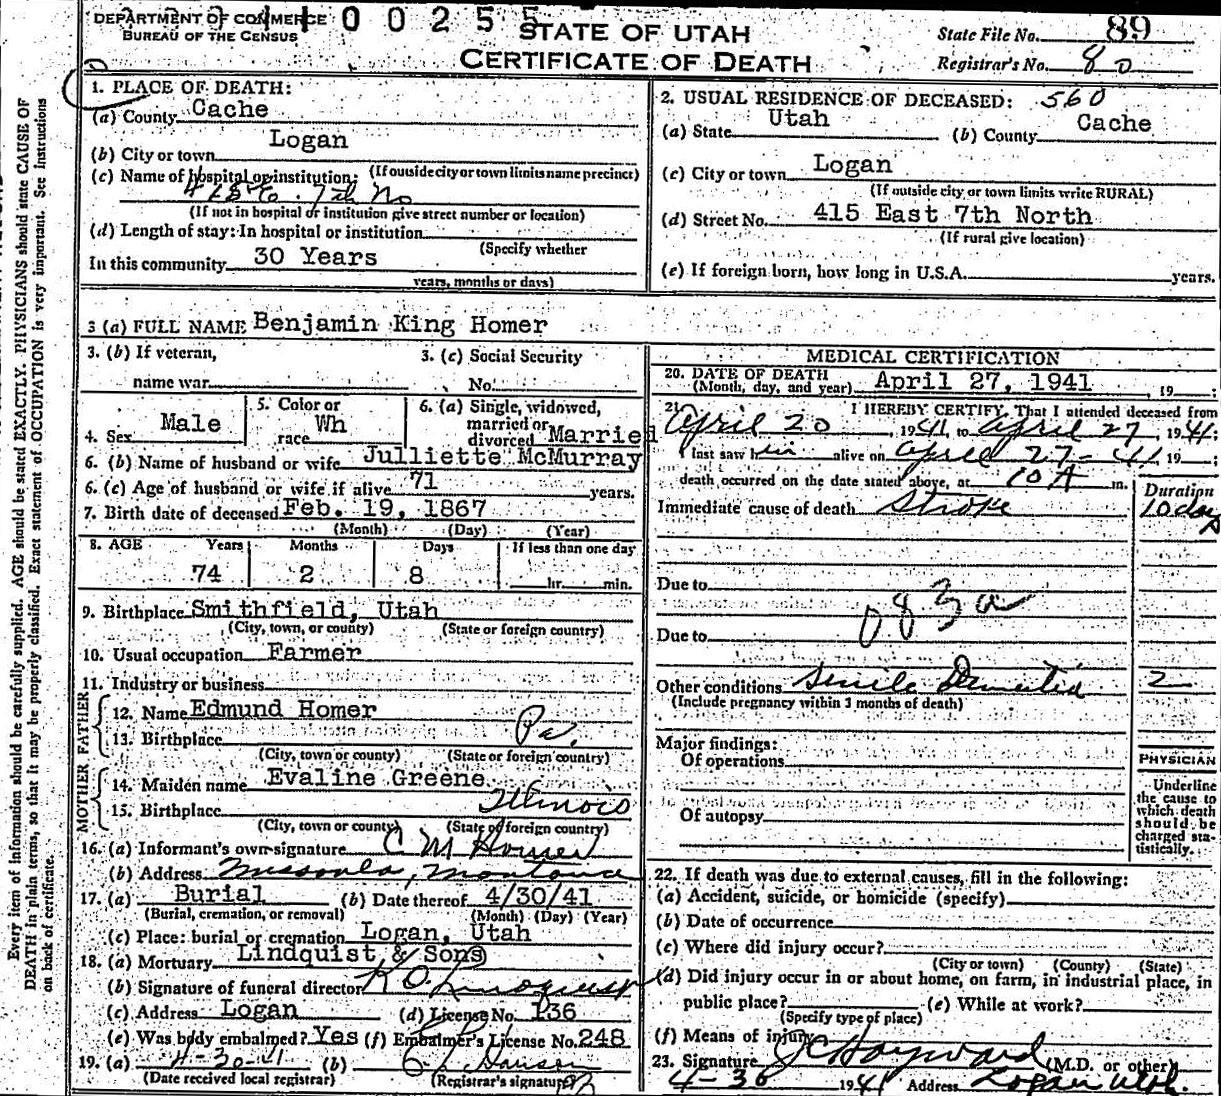 DEPARTMENT OF COMMERCE
BUREAU OF THE CENSUS
0 0 2 5 5
STATE OF UTAH
CERTIFICATE OF DEATH
State File No. 89
Registrar's No. 80
1. PLACE OF DEATH:
(a) County Cache
(b) City or town Logan
(If outside city or town limits name precinct)
(c) Name of hospital or institution:
415 E. 7th No
(If not in hospital or institution give street number or location)
(d) Length of stay: In hospital or institution
(Specify whether
In this community 30 Years
years, months or days)
2. USUAL RESIDENCE OF DECEASED: 560
(a) State Utah (b) County Cache
(c) City or town Logan
(If outside city or town limits write RURAL)
(d) Street No. 415 East 7th North
(If rural give location)
(e) If foreign born, how long in U.S.A. years.
3 (a) FULL NAME Benjamin King Homer
3. (b) If veteran,
name war
3. (c) Social Security
No.
4. Sex Male
5. Color or
race Wh
6. (a) Single, widowed,
married or
divorced Married
6. (b) Name of husband or wife Julliette McMurray
6. (c) Age of husband or wife if alive 71 years.
7. Birth date of deceased Feb. 19, 1867
(Month) (Day) (Year)
8. AGE Years Months Days If less than one day
74 2 8 hr. min.
9. Birthplace Smithfield, Utah
(City, town, or county) (State or foreign country)
10. Usual occupation Farmer
11. Industry or business
FATHER
12. Name Edmund Homer
13. Birthplace Pa.
(City, town or county) (State or foreign country)
MOTHER
14. Maiden name Evaline Greene
15. Birthplace Illinois
(City, town or county) (State or foreign country)
16. (a) Informant's own signature C M Homer
(b) Address Missoula, Montana
17. (a) Burial (b) Date thereof 4/30/41
(Burial, cremation, or removal) (Month) (Day) (Year)
(c) Place: burial or cremation Logan, Utah
18. (a) Mortuary Lindquist & Sons
(b) Signature of funeral director K O Lindquist
(c) Address Logan (d) License No. 136
(e) Was body embalmed? Yes (f) Embalmer's License No. 248
19. (a) 4-30-41 (b)
(Date received local registrar) (Registrar's signature)
MEDICAL CERTIFICATION
20. DATE OF DEATH
(Month, day, and year) April 27, 1941, 19 ;
21. I HEREBY CERTIFY, That I attended deceased from
April 20, 1941, to April 27, 1941;
last saw him alive on April 27-41, 19 ;
death occurred on the date stated above, at 10 A m.
Duration
Immediate cause of death Stroke 10 days
Due to
083a
Due to
Other conditions Senile Dementia 2
(Include pregnancy within 3 months of death)
Major findings:
Of operations
Of autopsy
PHYSICIAN
Underline
the cause to
which death
should be
charged sta-
tistically.
22. If death was due to external causes, fill in the following:
(a) Accident, suicide, or homicide (specify)
(b) Date of occurrence
(c) Where did injury occur?
(City or town) (County) (State)
(d) Did injury occur in or about home, on farm, in industrial place, in
public place? (e) While at work?
(Specify type of place)
(f) Means of injury
23. Signature J C Hayward (M.D. or other)
4-30 1941 Address Logan Utah.
Every item of information should be carefully supplied. AGE should be stated EXACTLY. PHYSICIANS should state CAUSE OF
DEATH in plain terms, so that it may be properly classified. Exact statement of OCCUPATION is very important. See instructions
on back of certificate.